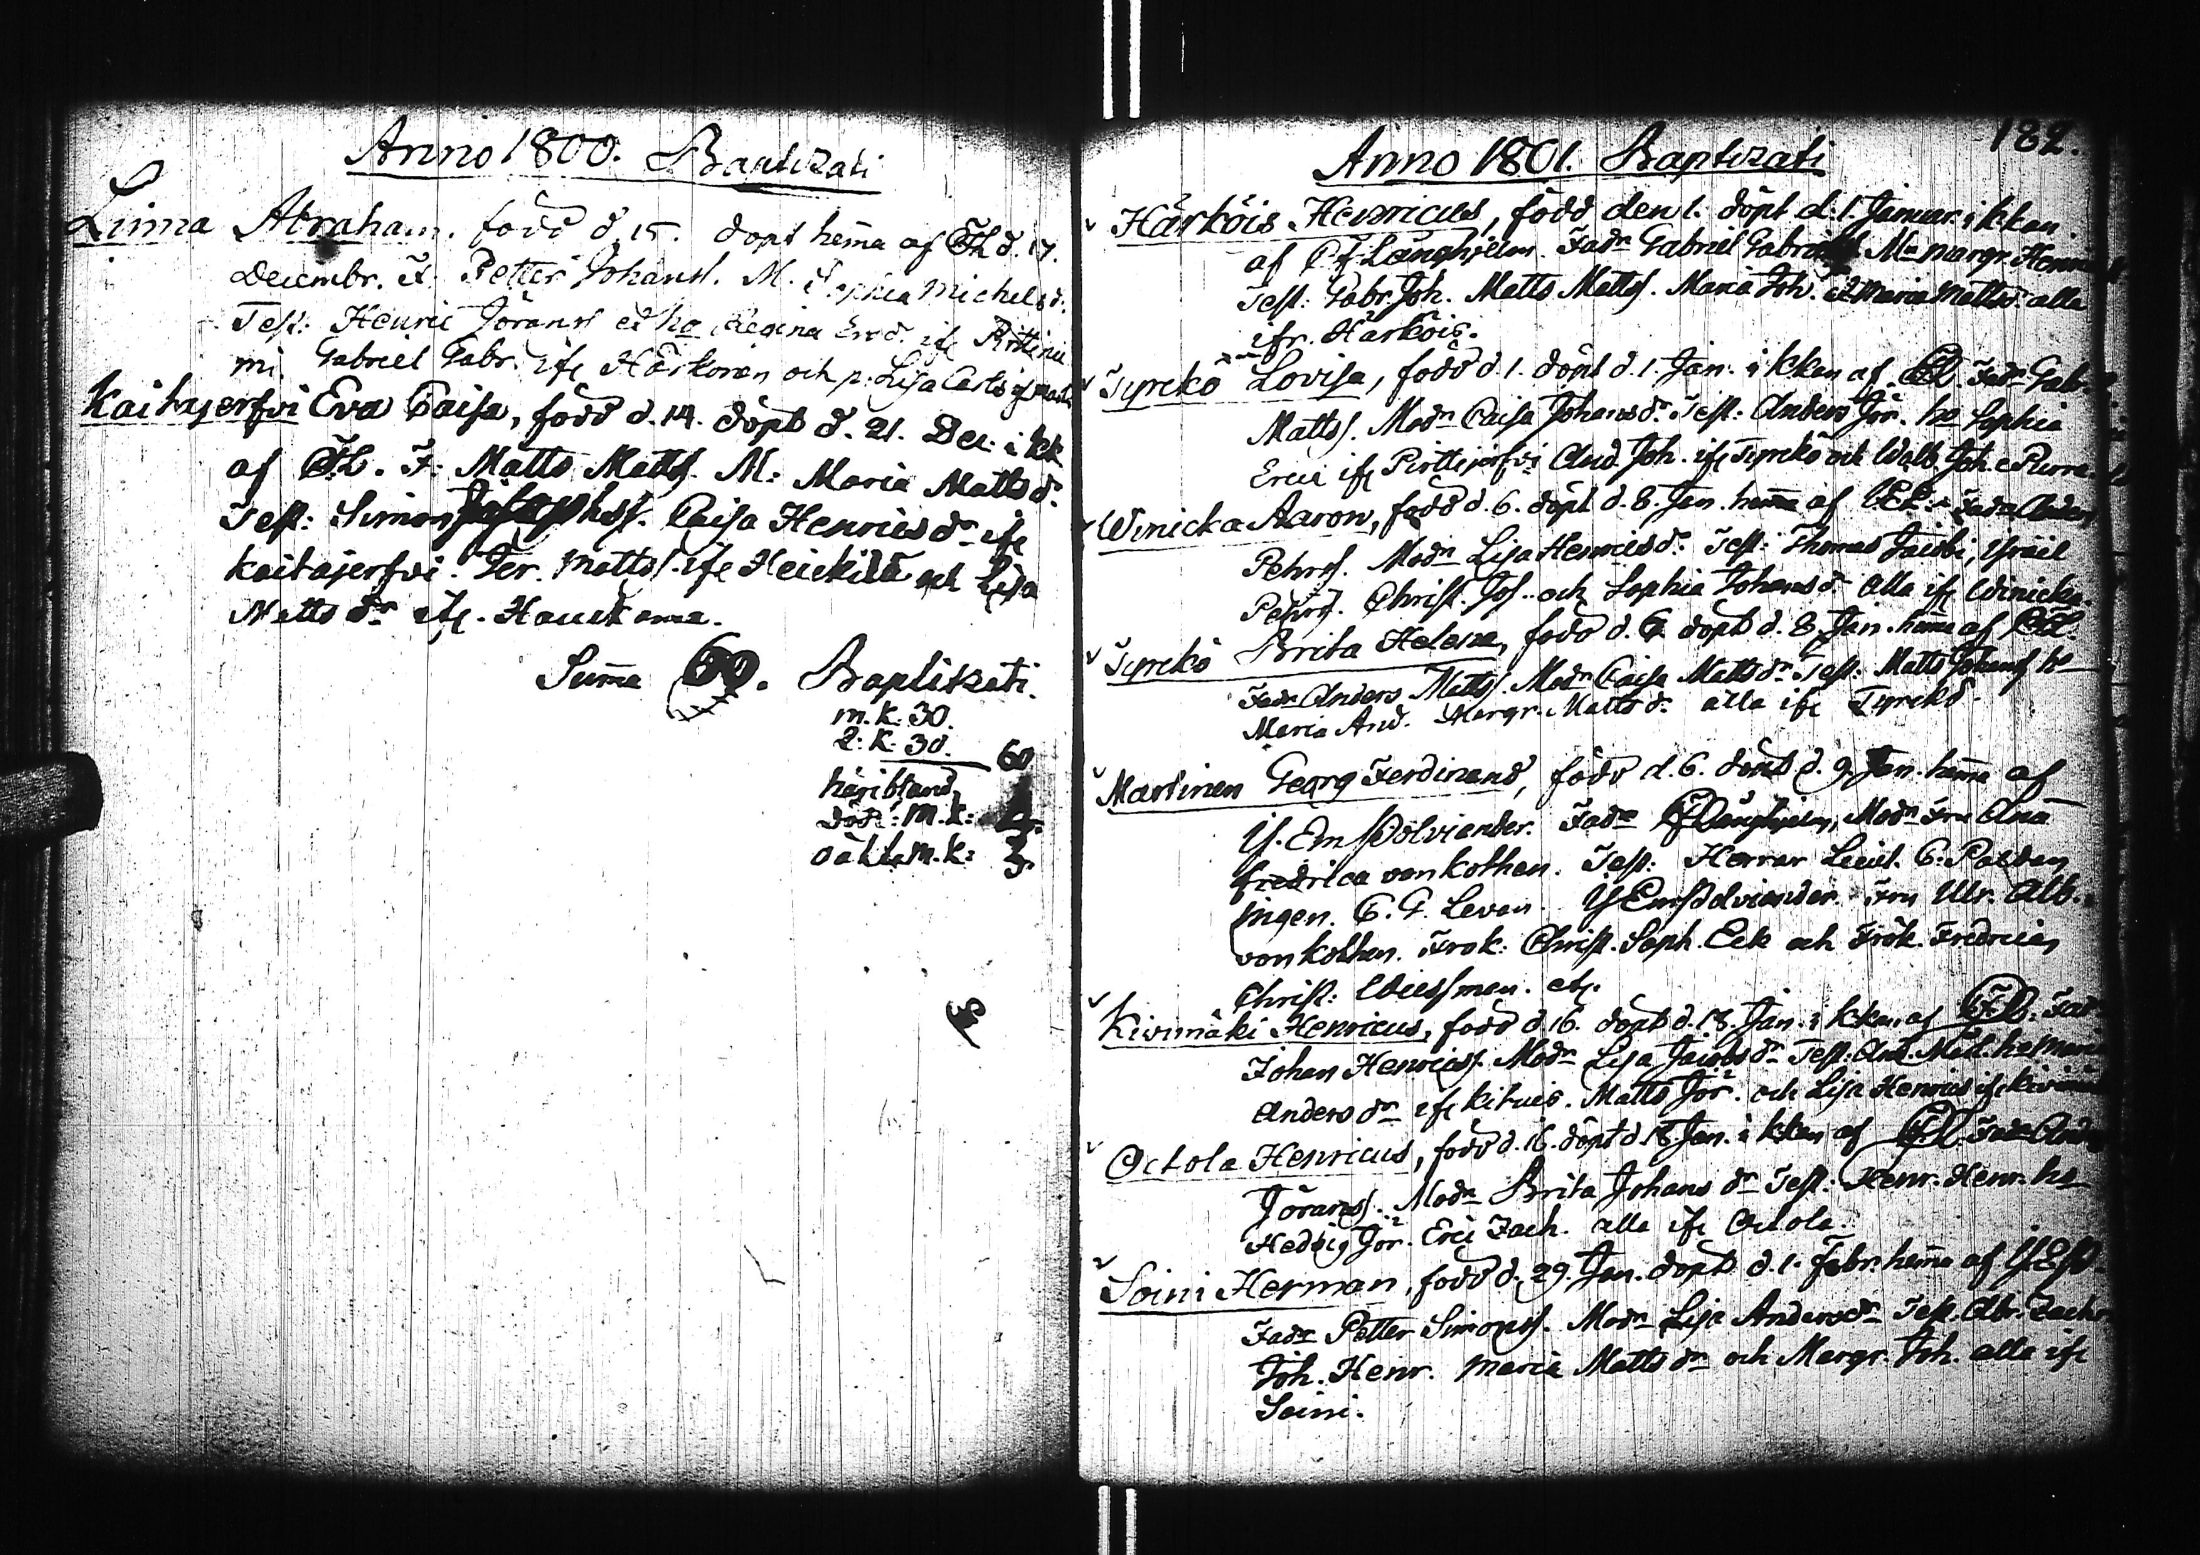 Anno 1800. Baptizati
Luma Abraham. född d. 15. döpt hem̄a af d. 17.
Decembr. F. Petter Johans. M. Sophia Michelsd.
Test: Henric Jörans et ho Regina ifr
mi Gabriel Gabr. ifr Härkönen och p. Lisa Carls
Kaitajerfvi Eva Caisa, född d. 14. döpt d. 21. Dec. i kk
af F: Matts Matts. M: Maria Mattsdr
Test: Simon Caisa Henricsdr ifr
Kaitajerfvi. Ger. Mattss. ifr Heickilä och Lisa
Mattsdr ifr. Hauckama.
Sum̄a 60. Baptizati.
m. k. 30.
2: k: 30. 60
häribland
döde: m. k:
oäkta m. k: 3.
182.
Anno 1801. Baptizati
Härköis Henricus, född den 1. döpt d. 1. Januar. i kkan
af C. F. Langhielm. Fadr Gabriel Mn margr.
Test: Gabr. Joh. Matts Matts. Maria Joh. et Maria Mattsd. alla
ifr. Härköis.
Tyrckö Lovisa, född d. 1. döpt d. 1. Jan. i kkan af Fadr Gabr.
Matts. Modr Caisa Johansdr Test: Anders Jör. ho Sophia
Erici ifr Pirttijerfvi And. Joh. ifr Tyrckö och Walb. Joh.
Winicka Aaron, född d. 6. döpt d. 8. Jan. hem̄a af Fadr
Pehrs. Modr Lisa Henricsdr Test: Thomas Jacobi, Israel
Pehrs. Christ. Jos. och Sophia Johansdr alla ifr Winicka.
Tyrckö Brita Helena, född d. 6. döpt d. 8. Jan. hem̄a af
Fadr Anders Matts. Modr Caisa Mattsdr Test: Matts Johans ho
Maria And. Margr. Mattsdr alla ifr Tyrckö.
Martinen Georg Ferdinand, född d. 6. döpt d. 9. Jan. hem̄a af
Is. Em Polviander. Fadr Langhielm, Modr Fru An̄a
Fredrica von Kothen. Test: Herrar Lieut. C.
C. G. Leven. Is Em Polviander. Fru Ulr. Alb.
von Kothen. Frök: Christ. Soph. Eek och Frök. Fredrica
Christ: etc.
Kivimäki Henricus, född d. 16. döpt d. 18. Jan. i kkan af Fadr
Johan Henrics. Modr Lisa Jacobsdr Test: And. ho Maria
Andersdr ifr Kituis. Matts Jör. och Lisa Henrics ifr
Octola Henricus, född d. 16. döpt d. 18. Jan. i kkan af Fadr
Jörans. Modr Brita Johansdr Test: Henr. Henr. ho
Hedvig Jör. Eric Zach. alla ifr Octola.
Soini Herman, född d. 29. Jan. döpt d. 1. Febr. hem̄a af
Fadr Petter Simons. Modr Lisa Andersdr Test. Abr. Zachr
Joh. Henr. Maria Mattsdr och Margr. Joh. alla ifr
Soini.